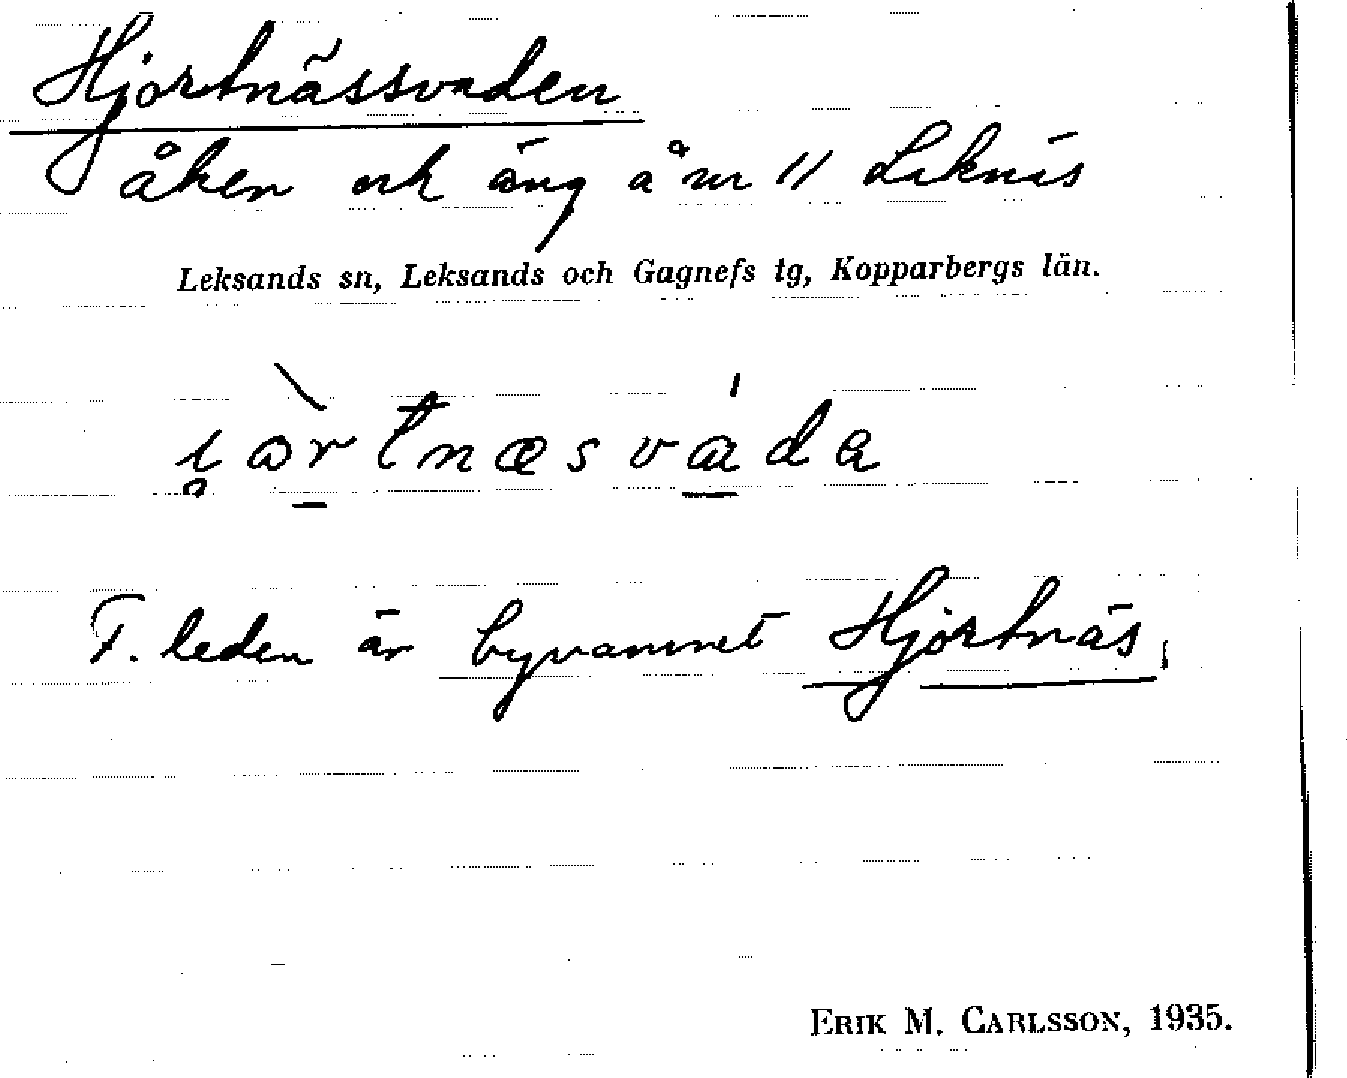 Hjortnässvaden
åker och äng å nr 11 Liknäs
Leksands sn, Leksands och Gagnefs tg, Kopparbergs län.
F. leden är bynamnet Hjortnäs,
ERIK M. CARLSSON, 1935.